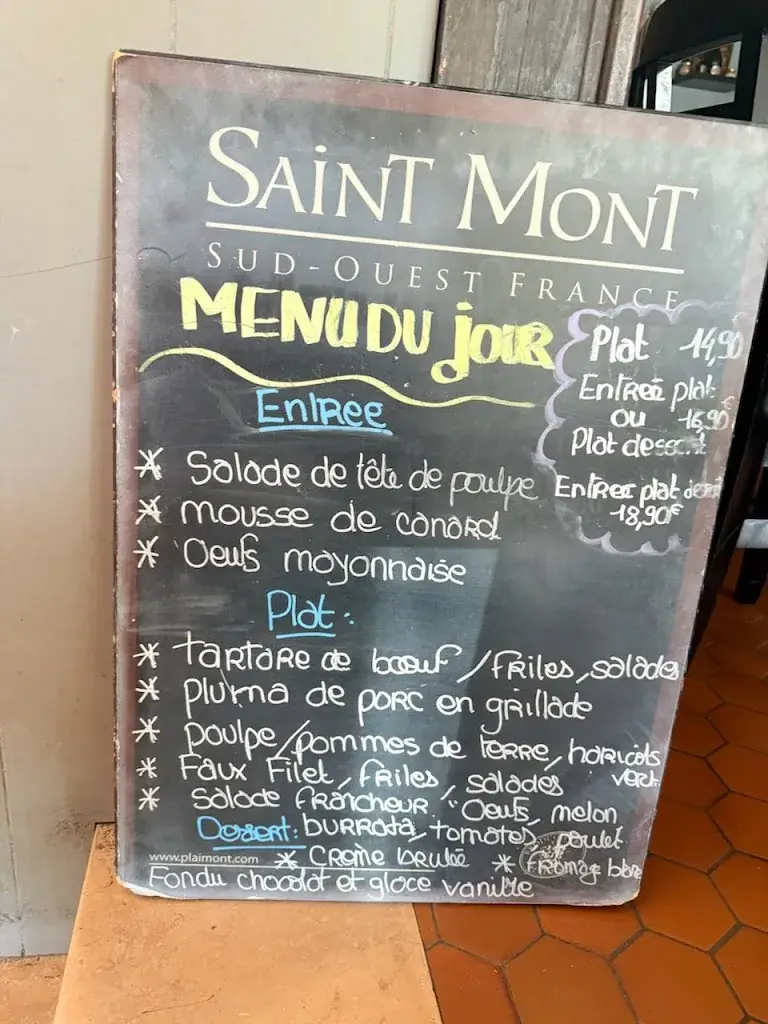 SAINT MONT
SUD-OUEST FRANCE
MENU DU JOUR
Plat 14,90
Entrée plat
ou 16,90
Plat dessert
Entrée plat
18,90€
Entree
* Salade de tête de poulpe
* mousse de canard
* Oeufs mayonnaise
Plat :
* tartare de boeuf / friles, salades
* pluma de porc en grillade
* poulpe / pommes de terre, haricots
vert
* Faux Filet, friles, salades
* Salade fraîcheur : Oeufs, melon
burrata, tomates, poulet
Desert :
www.plaimont.com
* Crème brulée * fromage blanc
Fondu chocolat et glace vanille